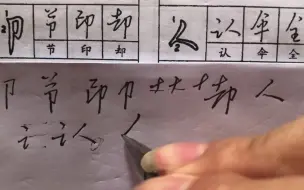 卩 节 印 却 人 认 伞 全
节 印 却 认 伞 全
卩 节 印 卩 艹 十 却 人
讠 认 人